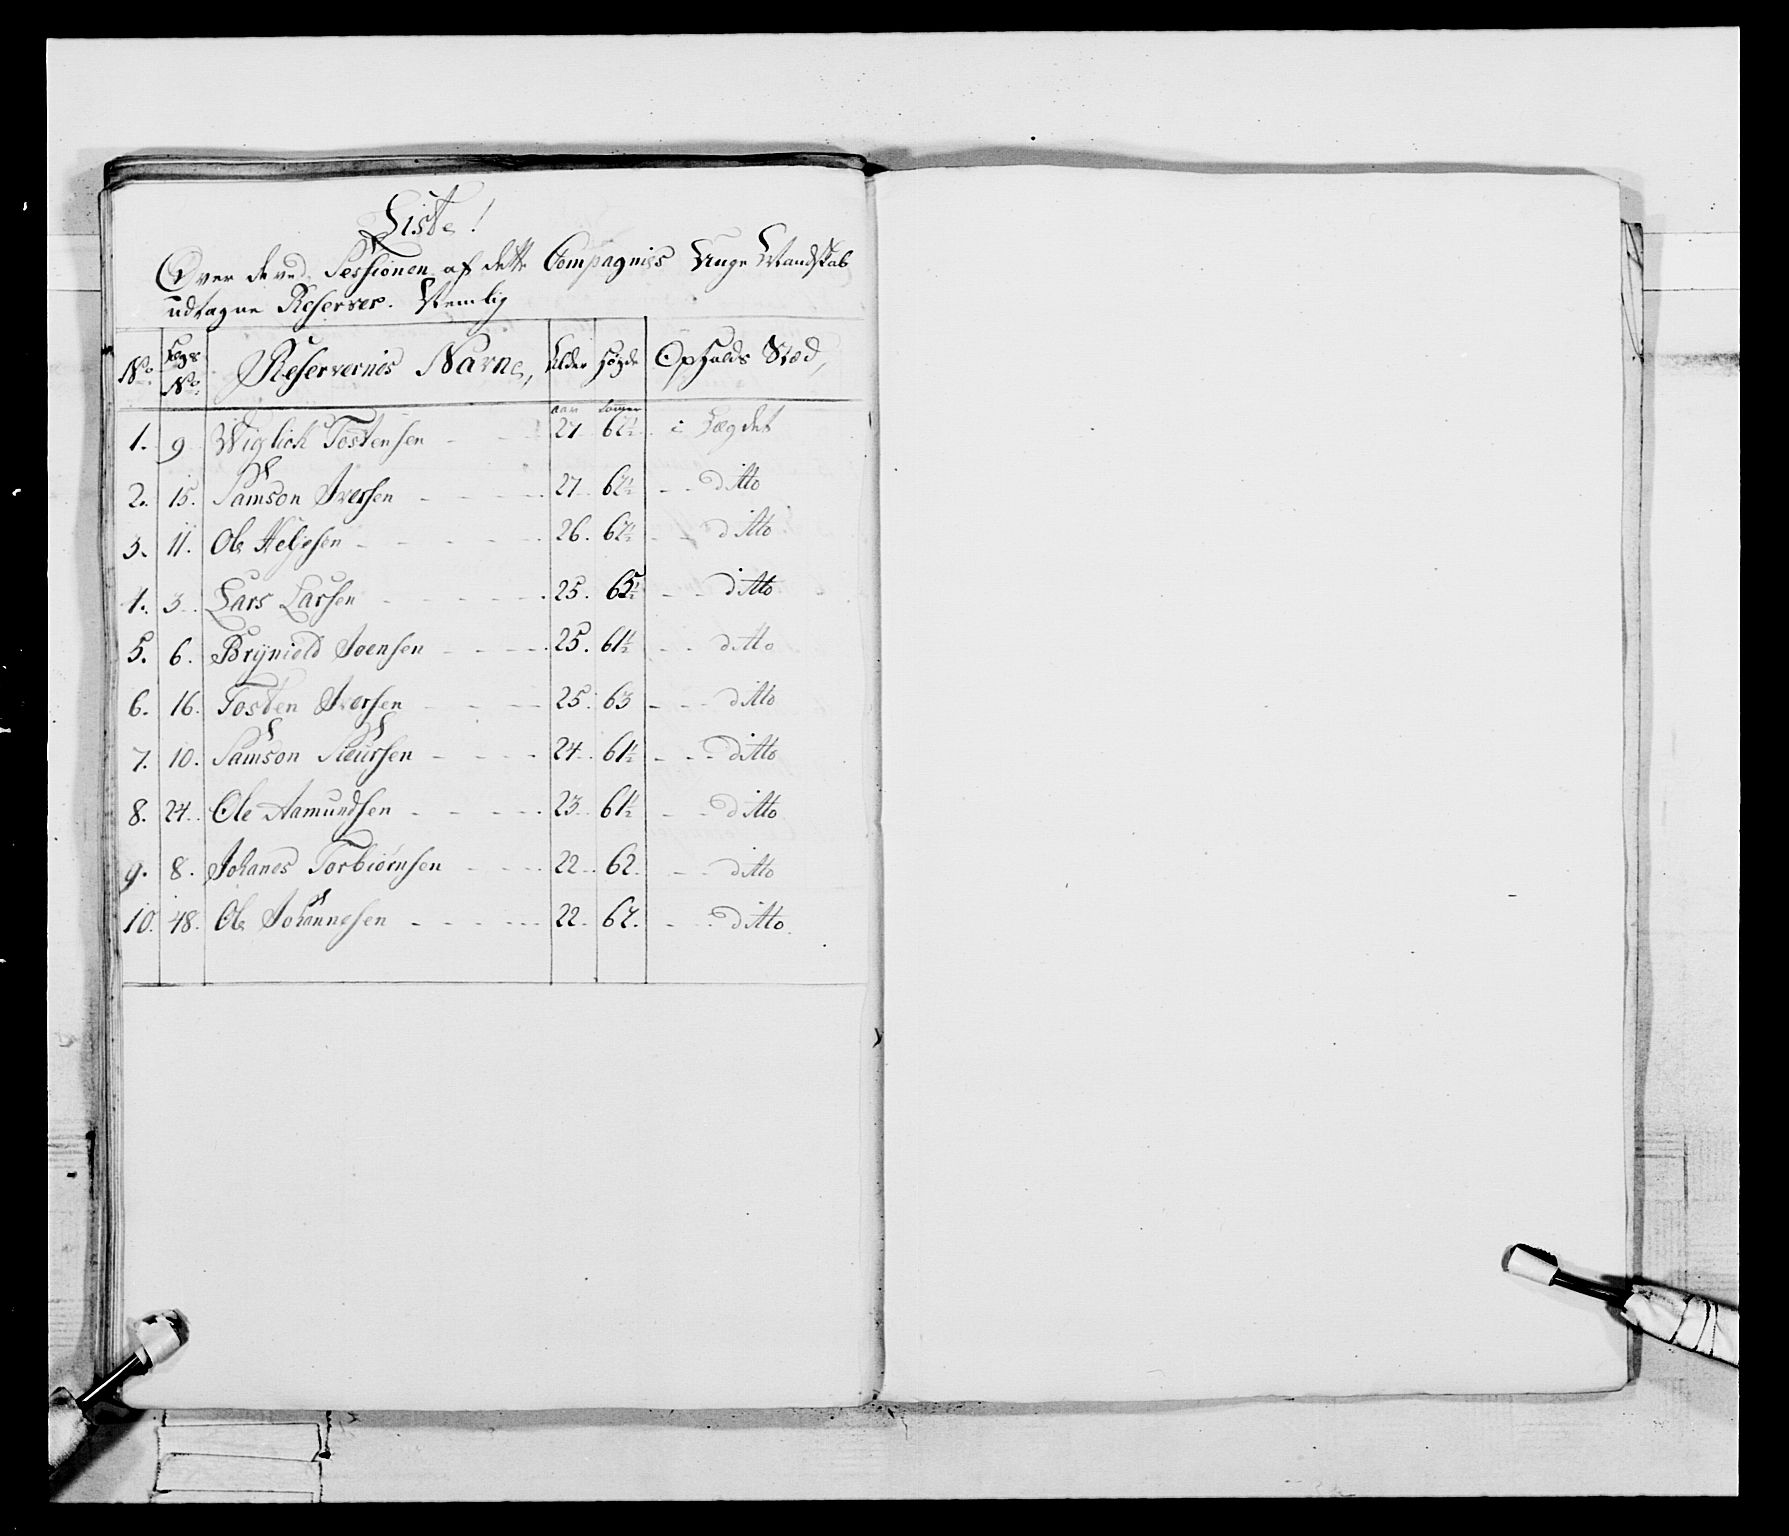 Liste!
Over de ved Sessionen af dette Compagnies Unge Mandskab
udtagne Reserver. Nemlig
No. Lægs No. Reservernes Navne, Alder Høyde Opholds Stæd,
aar tommer
1. 9 Wiglich Tostensen - - 27 62½ i Lægdet
2. 15. Samson Iversen - - - - 27 62½ - - ditto
3. 11. Ole Heljesen - - - - - 26. 62½ - - ditto
4. 3. Lars Larsen - - - - - 25. 65½ - - ditto
5. 6. Brÿnield Joensen - - - - 25. 61½ - - ditto
6. 16. Tosten Iversen - - - - 25. 63 - - - ditto
7. 10. Samson Siursen - - - - 24. 61½ - - - ditto
8. 24. Ole Aamundsen - - - - 23. 61½ - - ditto
9. 8. Johanes Torbiørnsen - - - - 22. 62. - - ditto
10. 48. Ole Johannesen - - - - - 22. 62. - - ditto.